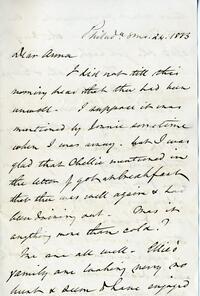 Philada. 24. 1883
Dear Anna
I did not till this
morning hear that thee had been
unwell. I suppose it was
mentioned by sometime
when I was away. but I was
glad that mentioned in
the letter I got at breakfast
that thee was well again & had
been driving out. Was it
anything more than cold?
We are all well. Ellie's
family are looking very
& seem to have enjoyed